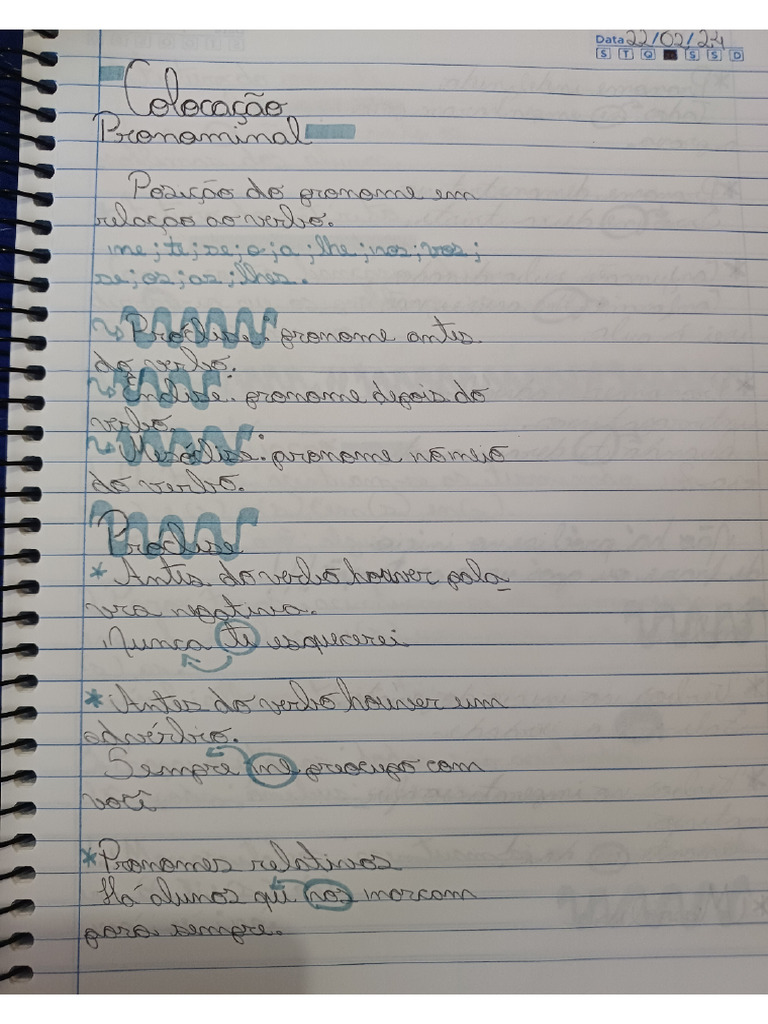 Data 22/02/24
S T Q S S D
Colocação
Pronominal
Posição do pronome em
relação ao verbo.
me; te; se; o; a; lhe; nos; vos;
se; os; as; lhes.
Próclise: pronome antes
do verbo.
Ênclise: pronome depois do
verbo.
Mesóclise: pronome no meio
do verbo.
Próclise
* Antes do verbo houver pala-
vra negativa.
Nunca te esquecerei
* Antes do verbo houver um
advérbio.
Sempre me preocupo com
você
* Pronomes relativos
Há alunos que nos marcam
para sempre.